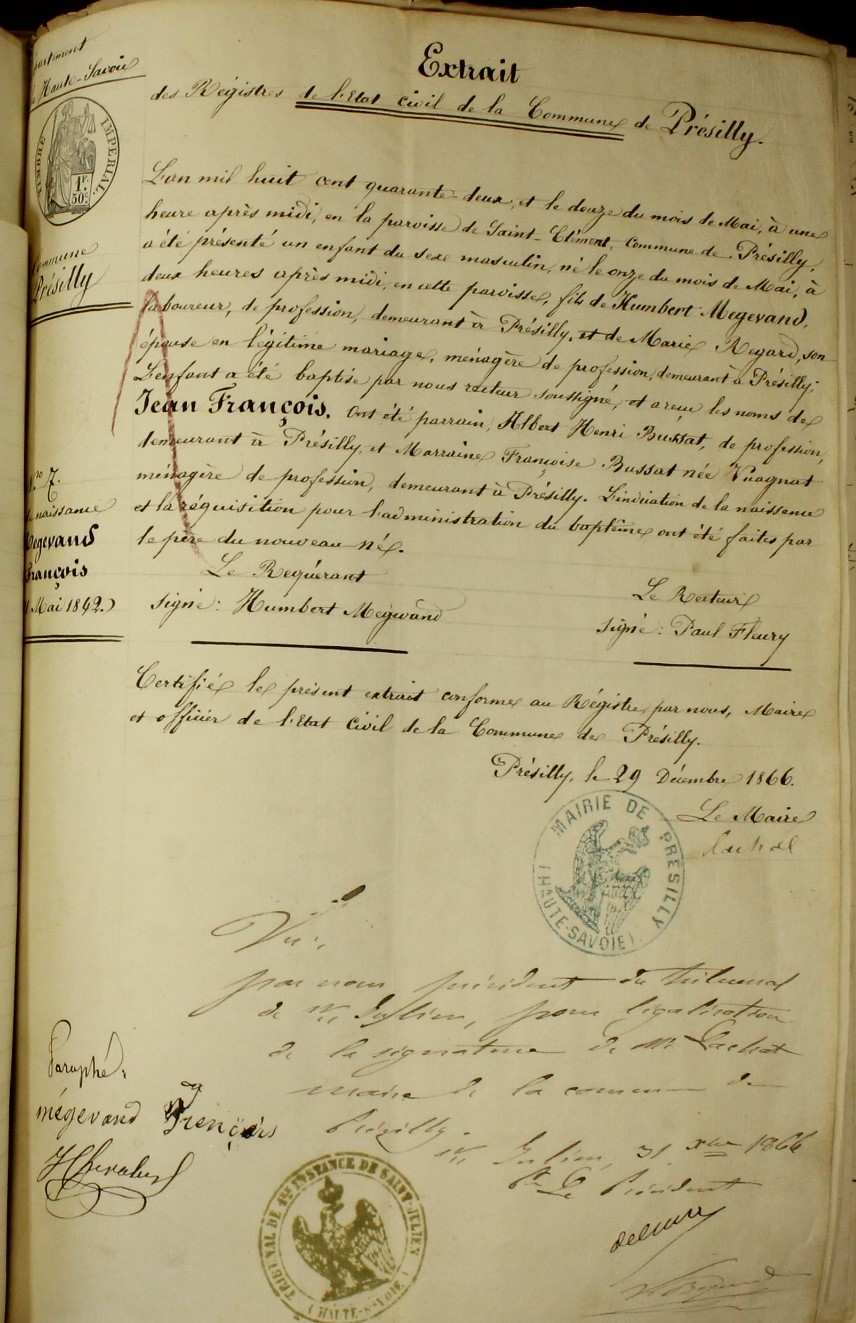 Haute-Savoie
TIMBRE IMPERIAL
1F.
50C.
Commune
Présilly
Nro 7.
naissance
Megevand
François
Mai 1842.)
Extrait
des Régistres de l'Etat civil de la Commune de Présilly.
L'an mil huit cent quarante-deux, et le douze du mois de Mai, à une
heure après midi, en la paroisse de Saint-Clément, commune de Présilly,
a été présenté un enfant du sexe masculin, né le onze du mois de Mai, à
deux heures après midi, en cette paroisse, fils de Humbert Megevand,
laboureur, de profession, demeurant à Présilly, et de Marie Regard, son
épouse en légitime mariage, ménagère de profession, demeurant à Présilly;
L'enfant a été baptisé par nous recteur soussigné, et a reçu les noms de
Jean François. Ont été parrain, Albert Henri Bussat, de profession,
demeurant à Présilly, et Marraine Françoise Bussat née Vuagnat
ménagère de profession, demeurant à Présilly. L'indication de la naissance
et la réquisition pour l'administration du baptême ont été faites par
le père du nouveau né.
Le Requérant
Signé: Humbert Megevand
Le Recteur
Signé: Paul Fleury
Certifié le présent extrait conforme au Régistre par nous, Maire
et officier de l'Etat civil de la Commune de Présilly.
Présilly, le 29 Décembre 1866.
Le Maire
Lachat
MAIRIE DE PRESILLY
(HAUTE-SAVOIE)
Vu
par nous président du tribunal
de St Julien, pour légalisation
de la signature de Mr Lachat
maire de la commune de
Présilly.
St Julien, 31 xbre 1866
Le Président
Paraphé,
mégevand François
TRIBUNAL DE 1ERE INSTANCE DE SAINT-JULIEN
(HAUTE-SAVOIE)